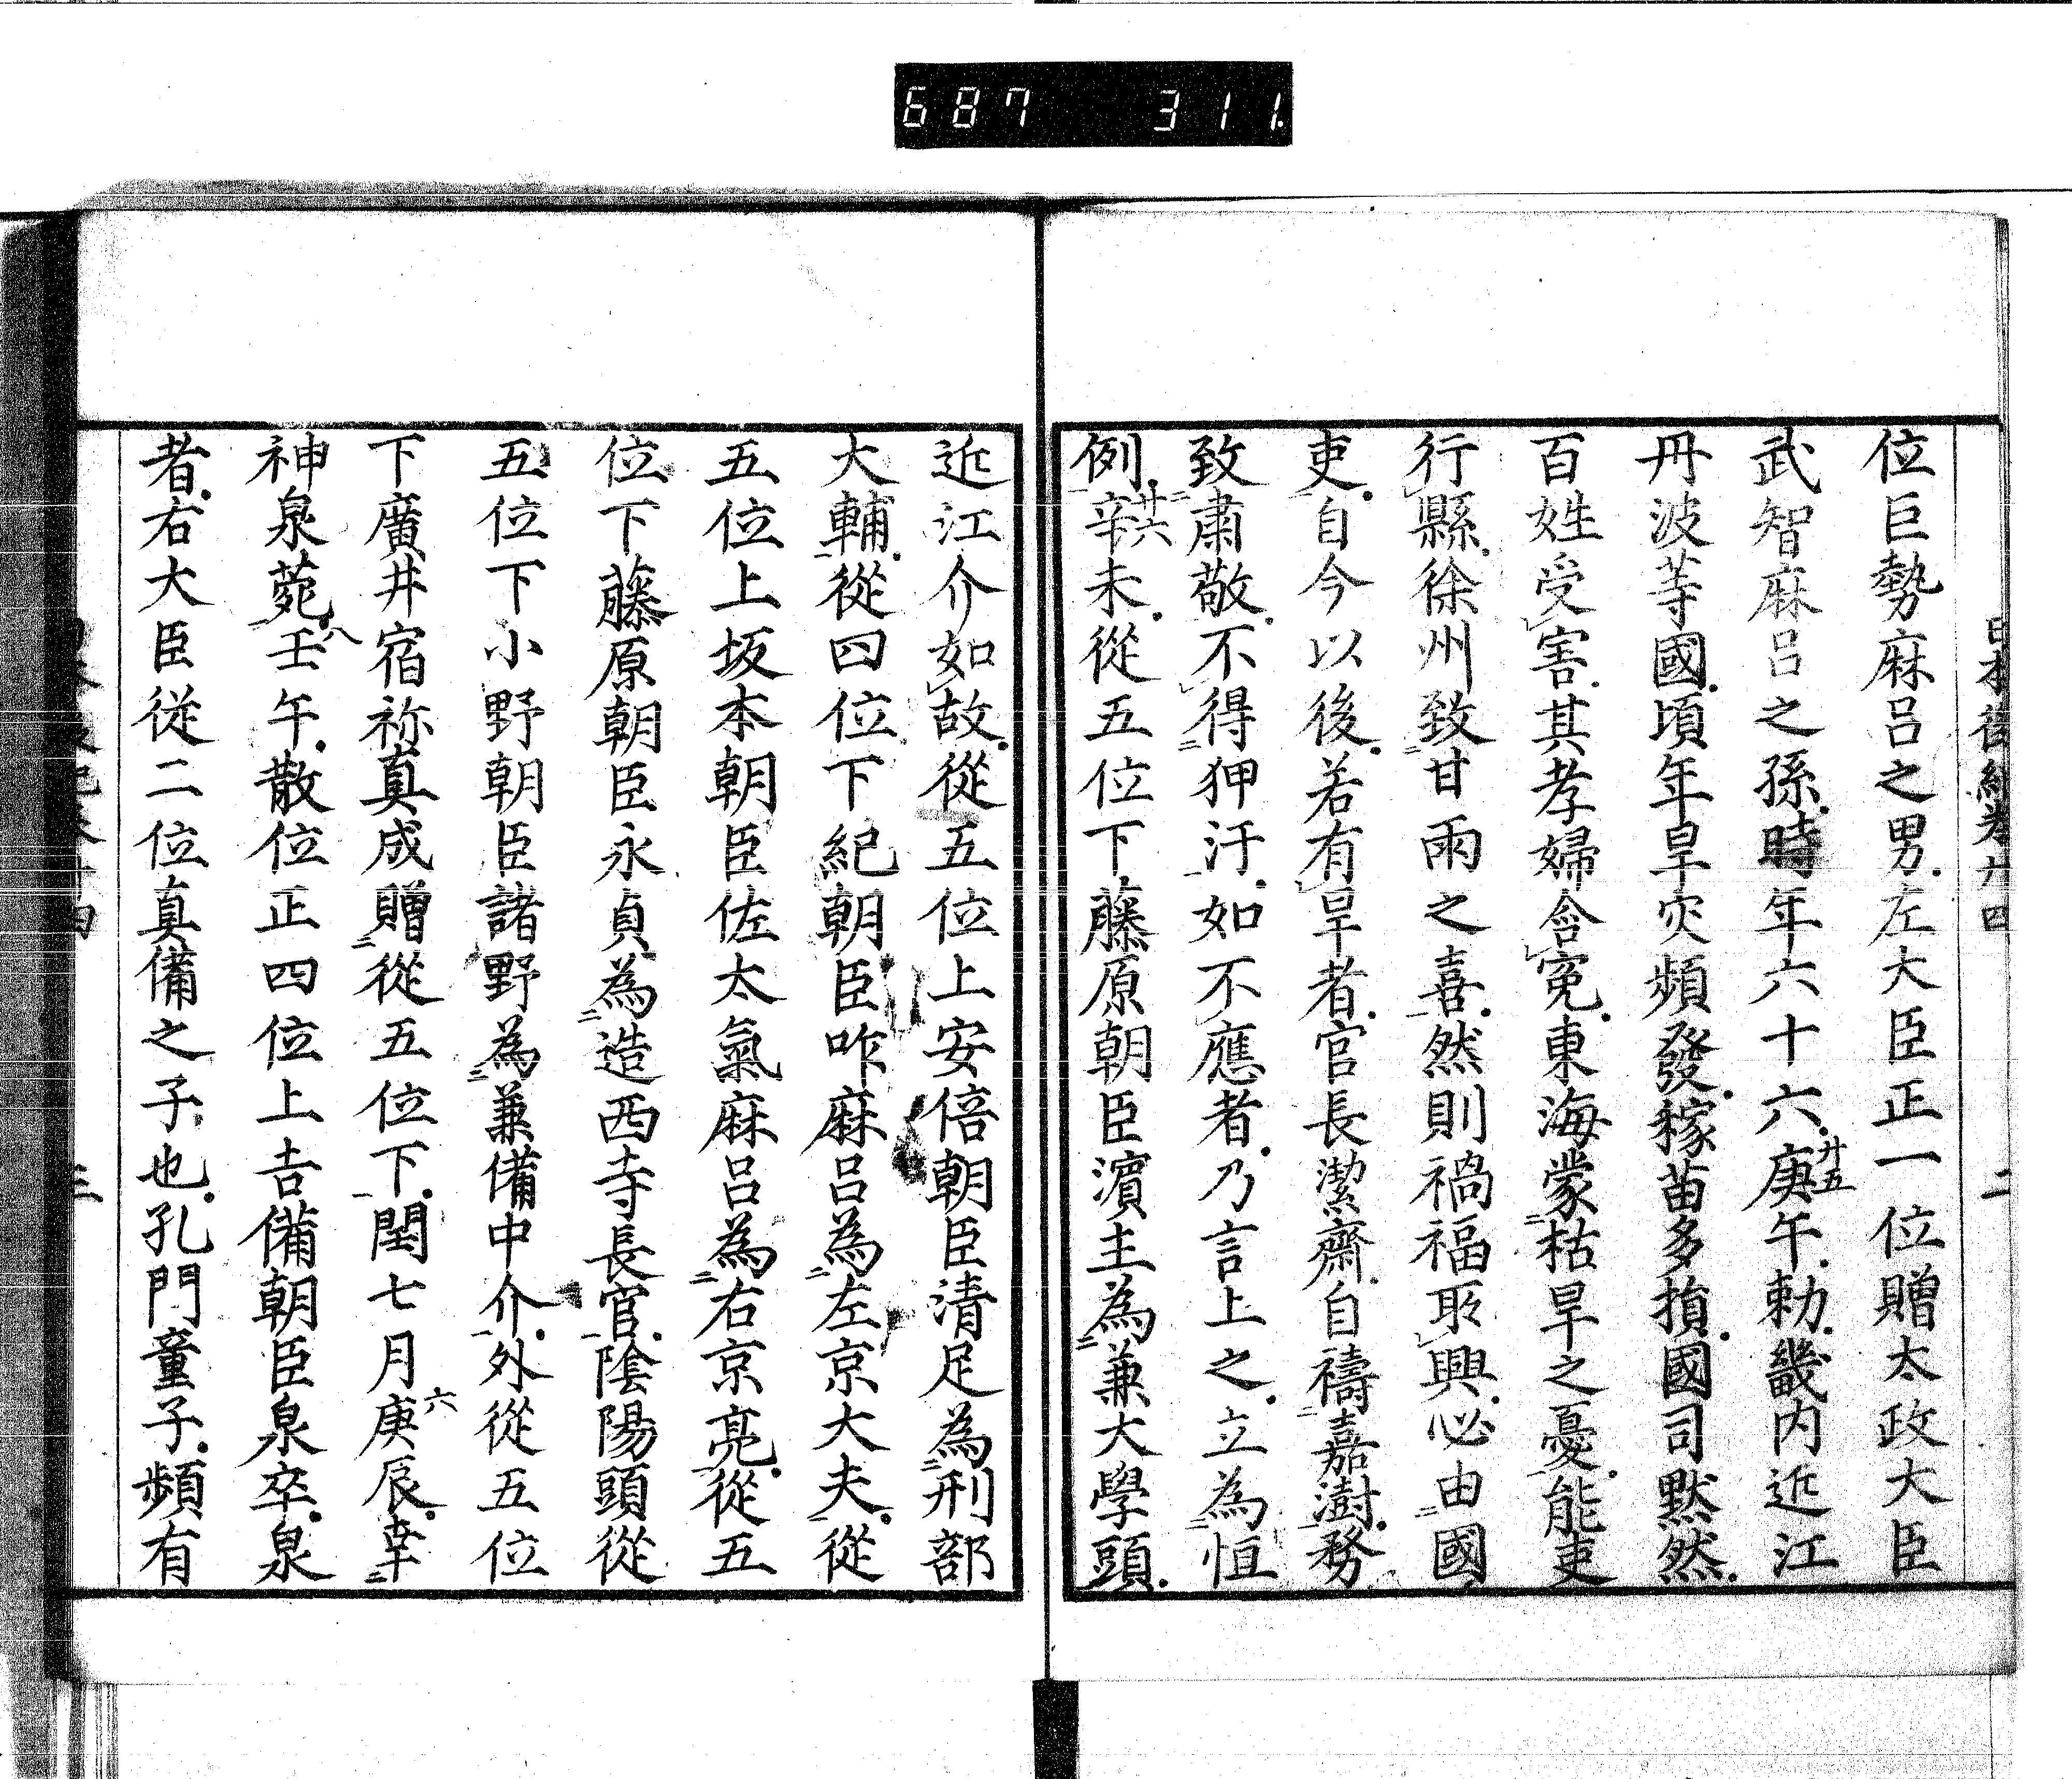 687 311.
日本後紀卷廿四 二
位巨勢麻呂之男.左大臣正一位贈太政大臣
武智麻呂之孫.時年六十六.廿五庚午.勅.畿内近江
丹波等國.頃年旱灾頻發.稼苗多損.國司默然.
百姓受害.其孝婦含寃.東海蒙枯旱之憂.能吏
行縣.徐州致甘雨之喜.然則禍福所興.必由國
吏.自今以後.若有旱者.官長潔齋.自禱嘉澍.務
致肅敬.不得狎汙.如不應者.乃言上之.立為恒
例.廿六辛未.從五位下藤原朝臣濱主為兼大學頭.
近江介如故.從五位上安倍朝臣清足為刑部
大輔.從四位下紀朝臣咋麻呂為左京大夫.從
五位上坂本朝臣佐太氣麻呂為右京亮.從五
位下藤原朝臣永貞為造西寺長官.陰陽頭從
五位下小野朝臣諸野為兼備中介.外從五位
下廣井宿祢真成贈從五位下.閏七月六庚辰.幸
神泉菀.八壬午.散位正四位上吉備朝臣泉卒.泉
者.右大臣從二位真備之子也.孔門童子.頻有
三